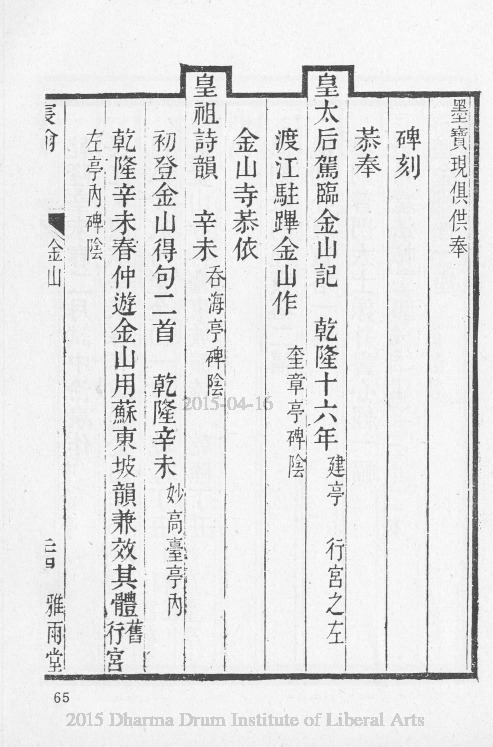 墨寶現俱供奉
碑刻
恭奉
皇太后駕臨金山記　乾隆十六年建亭　行宮之左
渡江駐蹕金山作　奎章亭碑陰
金山寺恭依
皇祖詩韻　辛未吞海亭碑陰
初登金山得句二首　乾隆辛未妙高臺亭內
乾隆辛未春仲遊金山用蘇東坡韻兼效其體舊行宮
左亭內碑陰
金山
雅雨堂
65
2015-04-16
2015 Dharma Drum Institute of Liberal Arts